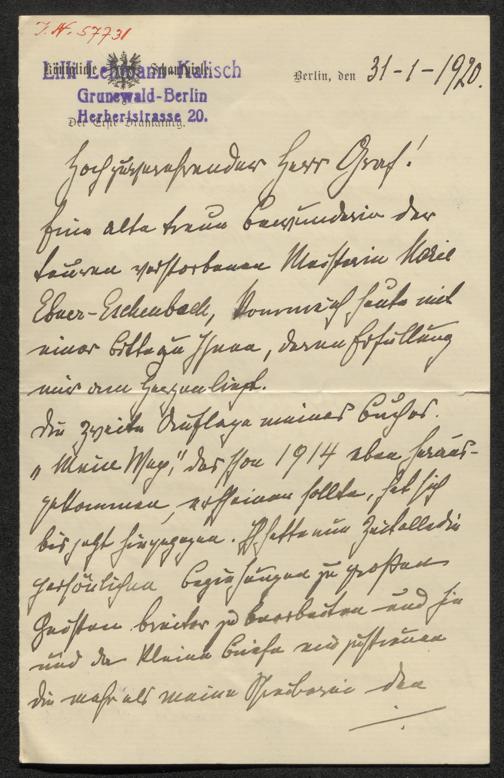 J. N. 57731
Königliche Schauspiele.
Lilli Lehmann Kalisch
Grunewald-Berlin
Herbertstrasse 20.
Der Erste
Berlin, den 31-1-1920.
Hochzuverehrender Herr Graf!
Eine alte treue Bewunderin der
teuren verstorbenen Meisterin Marie
Ebner-Eschenbach, kommt heute mit
einer Bitte zu Ihnen, deren Erfüllung
mir am Herzen liegt.
Die zweite Auflage meines Buches.
„Mein Weg", das schon 1914 eben heraus-
gekommen, erscheinen sollte, hat sich
bis jetzt hingezogen. Ich hatte nun Zeit alle die
persönlichen Beziehungen zu großen
Geistern breiter zu bearbeiten und hie
und da kleine Briefe einzustreuen
die mehr als meine Schreiberei den